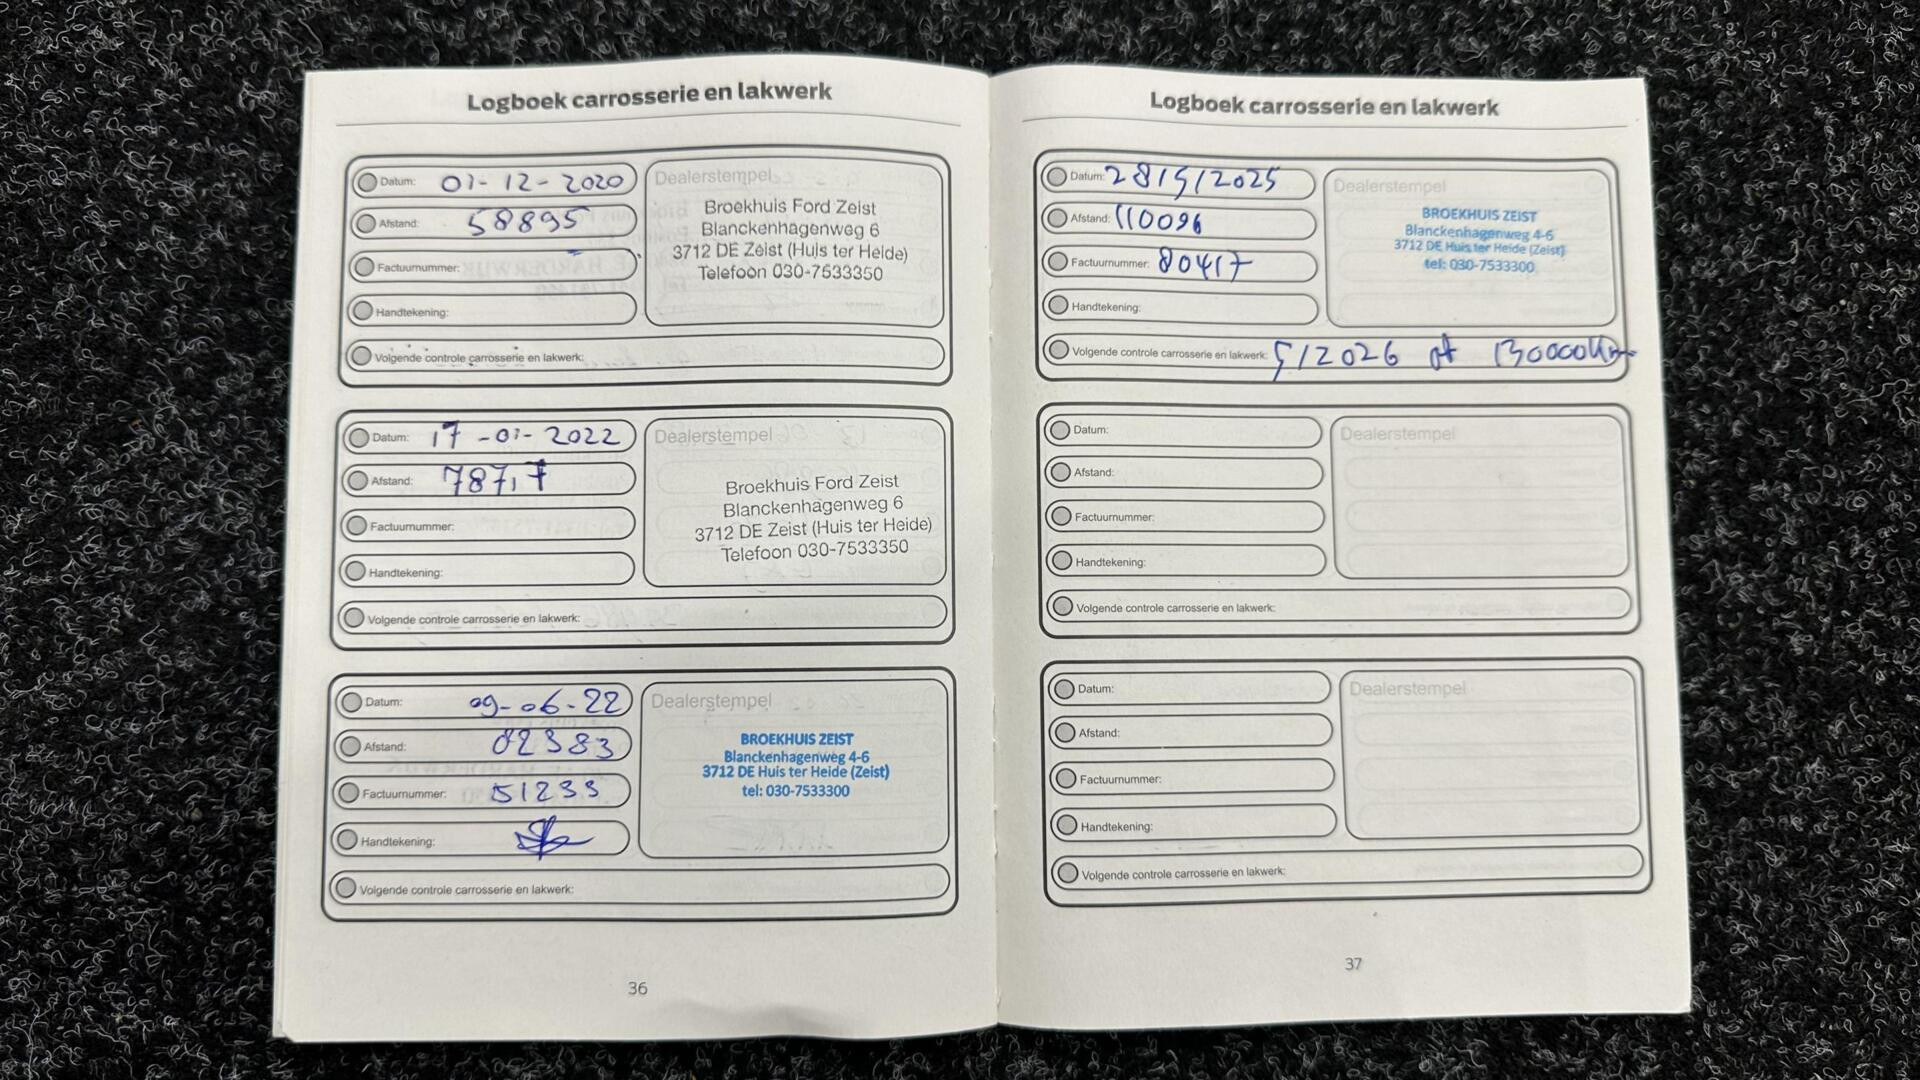 Logboek carrosserie en lakwerk
Datum: 01-12-2020
Afstand: 58895
Factuurnummer:
Handtekening:
Volgende controle carrosserie en lakwerk:
Dealerstempel
Broekhuis Ford Zeist
Blanckenhagenweg 6
3712 DE Zeist (Huis ter Heide)
Telefoon 030-7533350
Datum: 17-01-2022
Afstand:
Factuurnummer:
Handtekening:
Volgende controle carrosserie en lakwerk:
Dealerstempel
Broekhuis Ford Zeist
Blanckenhagenweg 6
3712 DE Zeist (Huis ter Heide)
Telefoon 030-7533350
Datum: 09-06-22
Afstand: 82383
Factuurnummer: 51233
Handtekening:
Volgende controle carrosserie en lakwerk:
Dealerstempel
BROEKHUIS ZEIST
Blanckenhagenweg 4-6
3712 DE Huis ter Heide (Zeist)
tel: 030-7533300
36
Logboek carrosserie en lakwerk
Datum: 28/5/2025
Afstand: 110096
Factuurnummer: 80417
Handtekening:
Volgende controle carrosserie en lakwerk: 5/2026 of 130000km
Dealerstempel
BROEKHUIS ZEIST
Blanckenhagenweg 4-6
3712 DE Huis ter Heide (Zeist)
tel: 030-7533300
Datum:
Afstand:
Factuurnummer:
Handtekening:
Volgende controle carrosserie en lakwerk:
Dealerstempel
Datum:
Afstand:
Factuurnummer:
Handtekening:
Volgende controle carrosserie en lakwerk:
Dealerstempel
37